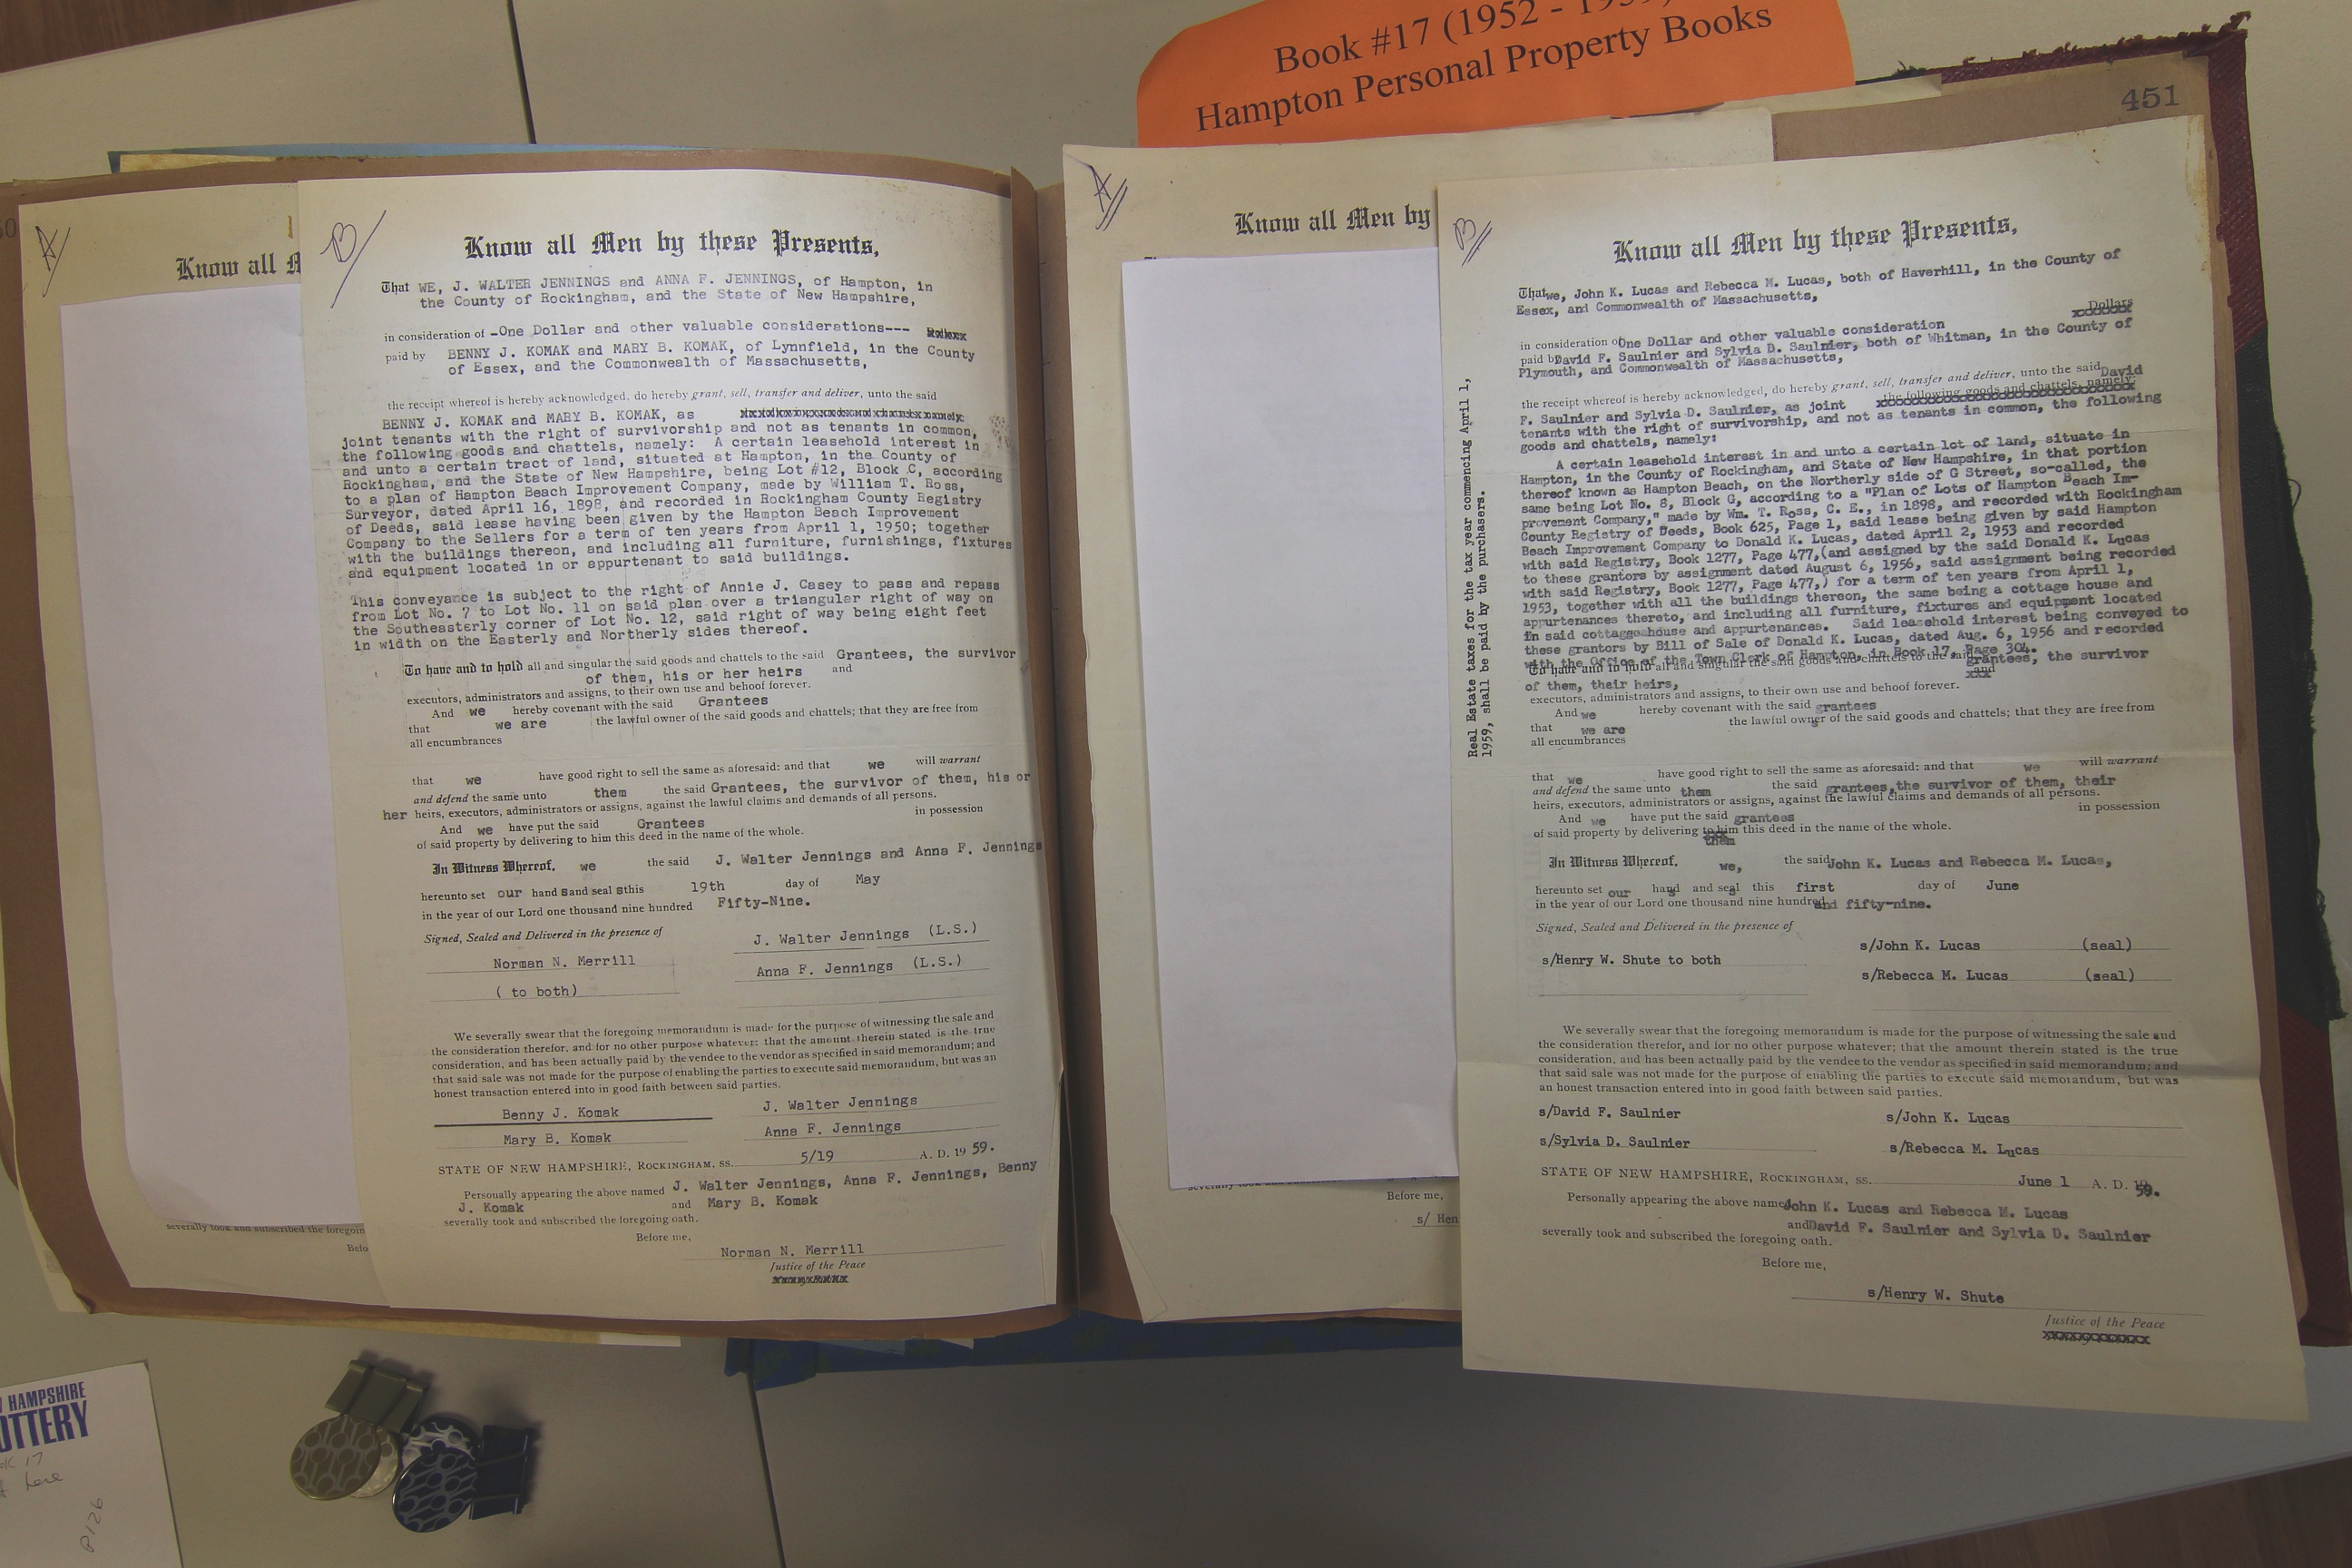 Book #17 (1952 -
Hampton Personal Property Books
451
Know all
Know all Men by these Presents,
That WE, J. WALTER JENNINGS and ANNA F. JENNINGS, of Hampton, in
the County of Rockingham, and the State of New Hampshire,
in consideration of -One Dollar and other valuable considerations---
paid by BENNY J. KOMAK and MARY B. KOMAK, of Lynnfield, in the County
of Essex, and the Commonwealth of Massachusetts,
the receipt whereof is hereby acknowledged, do hereby grant, sell, transfer and deliver, unto the said
BENNY J. KOMAK and MARY B. KOMAK, as
joint tenants with the right of survivorship and not as tenants in common,
the following goods and chattels, namely: A certain leasehold interest in
and unto a certain tract of land, situated at Hampton, in the County of
Rockingham, and the State of New Hampshire, being Lot #12, Block C, according
to a plan of Hampton Beach Improvement Company, made by William T. Ross,
Surveyor, dated April 16, 1898, and recorded in Rockingham County Registry
of Deeds, said lease having been given by the Hampton Beach Improvement
Company to the Sellers for a term of ten years from April 1, 1950; together
with the buildings thereon, and including all furniture, furnishings, fixtures
and equipment located in or appurtenant to said buildings.
This conveyance is subject to the right of Annie J. Casey to pass and repass
from Lot No. 7 to Lot No. 11 on said plan over a triangular right of way on
the Southeasterly corner of Lot No. 12, said right of way being eight feet
in width on the Easterly and Northerly sides thereof.
To have and to hold all and singular the said goods and chattels to the said Grantees, the survivor
of them, his or her heirs and
executors, administrators and assigns, to their own use and behoof forever.
And we hereby covenant with the said Grantees
that we are the lawful owner of the said goods and chattels; that they are free from
all encumbrances
that we have good right to sell the same as aforesaid: and that we will warrant
and defend the same unto them the said Grantees, the survivor of them, his or
her heirs, executors, administrators or assigns, against the lawful claims and demands of all persons.
And we have put the said Grantees in possession
of said property by delivering to him this deed in the name of the whole.
In Witness Whereof, we the said J. Walter Jennings and Anna F. Jennings
hereunto set our hand s and seal s this 19th day of May
in the year of our Lord one thousand nine hundred Fifty-Nine.
Signed, Sealed and Delivered in the presence of
J. Walter Jennings (L.S.)
Norman N. Merrill
Anna F. Jennings (L.S.)
( to both)
We severally swear that the foregoing memorandum is made for the purpose of witnessing the sale and
the consideration therefor, and for no other purpose whatever: that the amount therein stated is the true
consideration, and has been actually paid by the vendee to the vendor as specified in said memorandum; and
that said sale was not made for the purpose of enabling the parties to execute said memorandum, but was an
honest transaction entered into in good faith between said parties.
Benny J. Komak J. Walter Jennings
Mary B. Komak Anna F. Jennings
STATE OF NEW HAMPSHIRE, ROCKINGHAM, SS. 5/19 A. D. 19 59.
Personally appearing the above named J. Walter Jennings, Anna F. Jennings, Benny
J. Komak and Mary B. Komak
severally took and subscribed the foregoing oath.
Before me,
Norman N. Merrill
Justice of the Peace
severally took and subscribed the foregoing
Befo
A
B
Know all Men by
Before me,
s/ Hen
A
B
Know all Men by these Presents,
That we, John K. Lucas and Rebecca M. Lucas, both of Haverhill, in the County of
Essex, and Commonwealth of Massachusetts,
Dollars
in consideration of One Dollar and other valuable consideration
paid by David F. Saulnier and Sylvia D. Saulnier, both of Whitman, in the County of
Plymouth, and Commonwealth of Massachusetts,
the receipt whereof is hereby acknowledged, do hereby grant, sell, transfer and deliver, unto the said David
F. Saulnier and Sylvia D. Saulnier, as joint the following goods and chattels, namely:
tenants with the right of survivorship, and not as tenants in common, the following
goods and chattels, namely:
A certain leasehold interest in and unto a certain lot of land, situate in
Hampton, in the County of Rockingham, and State of New Hampshire, in that portion
thereof known as Hampton Beach, on the Northerly side of G Street, so-called, the
same being Lot No. 8, Block G, according to a "Plan of Lots of Hampton Beach Im-
provement Company," made by Wm. T. Ross, C. E., in 1898, and recorded with Rockingham
County Registry of Deeds, Book 625, Page 1, said lease being given by said Hampton
Beach Improvement Company to Donald K. Lucas, dated April 2, 1953 and recorded
with said Registry, Book 1277, Page 477,(and assigned by the said Donald K. Lucas
to these grantors by assignment dated August 6, 1956, said assignment being recorded
with said Registry, Book 1277, Page 477,) for a term of ten years from April 1,
1953, together with all the buildings thereon, the same being a cottage house and
appurtenances thereto, and including all furniture, fixtures and equipment located
in said cottage house and appurtenances. Said leasehold interest being conveyed to
these grantors by Bill of Sale of Donald K. Lucas, dated Aug. 6, 1956 and recorded
with the Office of the Town Clerk of Hampton, in Book 17, Page 304.
To have and to hold all and singular the said goods and chattels to the said grantees, the survivor
and
of them, their heirs,
executors, administrators and assigns, to their own use and behoof forever.
And we hereby covenant with the said grantees
that we are the lawful owners of the said goods and chattels; that they are free from
all encumbrances
that we have good right to sell the same as aforesaid: and that we will warrant
and defend the same unto them the said grantees,the survivor of them, their
heirs, executors, administrators or assigns, against the lawful claims and demands of all persons.
And we have put the said grantees in possession
of said property by delivering to him this deed in the name of the whole.
them
In Witness Whereof, we, the said John K. Lucas and Rebecca M. Lucas,
hereunto set our hands and seals this first day of June
in the year of our Lord one thousand nine hundred and fifty-nine.
Signed, Sealed and Delivered in the presence of
s/John K. Lucas (seal)
s/Henry W. Shute to both
s/Rebecca M. Lucas (seal)
We severally swear that the foregoing memorandum is made for the purpose of witnessing the sale and
the consideration therefor, and for no other purpose whatever; that the amount therein stated is the true
consideration, and has been actually paid by the vendee to the vendor as specified in said memorandum; and
that said sale was not made for the purpose of enabling the parties to execute said memorandum, but was
an honest transaction entered into in good faith between said parties.
s/David F. Saulnier s/John K. Lucas
s/Sylvia D. Saulnier s/Rebecca M. Lucas
STATE OF NEW HAMPSHIRE, ROCKINGHAM, SS. June 1 A. D. 19 59.
Personally appearing the above named John K. Lucas and Rebecca M. Lucas
and David F. Saulnier and Sylvia D. Saulnier
severally took and subscribed the foregoing oath.
Before me,
s/Henry W. Shute
Justice of the Peace
Real Estate taxes for the tax year commencing April 1,
1959, shall be paid by the purchasers.
HAMPSHIRE
OTTERY
17
here
P126